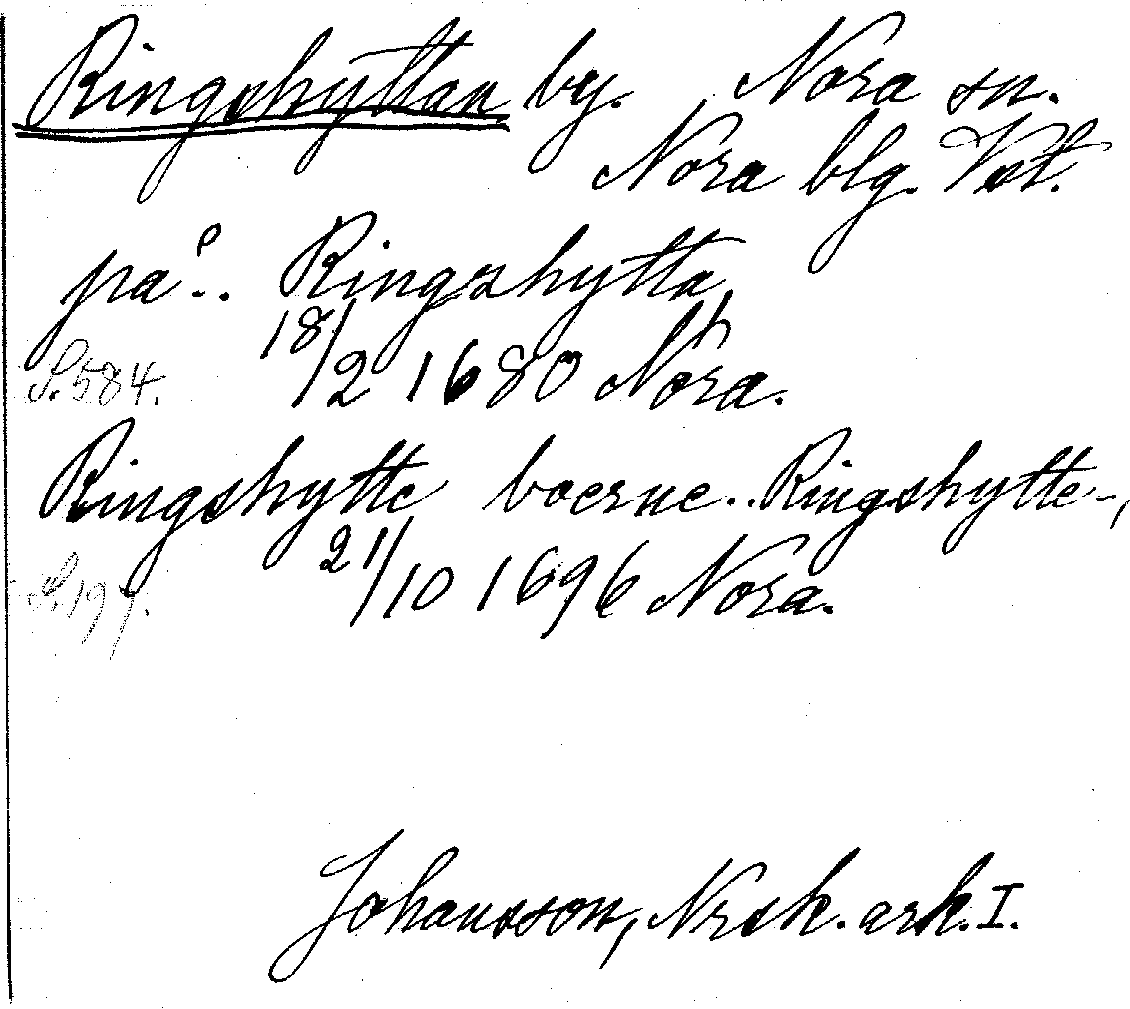 Ringshyttan by. Nora sn.
Nora blg. Vst.
på.. Ringzhytta,
18/2 1680 Nora.
S. 584.
Ringshytte boerne.. Ringshytte-,
21/10 1696 Nora.
S. 197.
Johansson, Nrsk. ark. I.